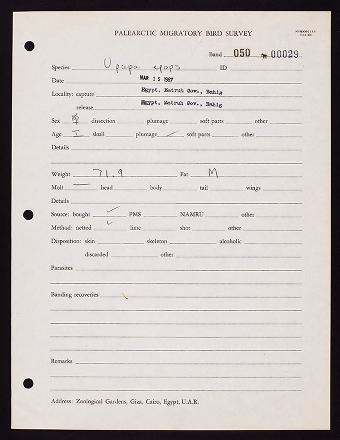 PALEARCTIC MIGRATORY BIRD SURVEY
Band 050 00029
Species Upupa epops ID
Date MAR 15 1967
Locality: capture Egypt, Matruh Gov., Bahig
release Egypt, Matruh Gov., Bahig
Sex dissection plumage soft parts other
Age I skull plumage ✓ soft parts other
Details
Weight 71.9 Fat M
Molt — head body tail wings
Details
Source: bought ✓ PMS NAMRU other
Method: netted ✓ lime shot other
Disposition: skin skeleton alcoholic
discarded other
Parasites
Banding recoveries
Remarks
Address: Zoological Gardens, Giza, Cairo, Egypt, U.A.R.